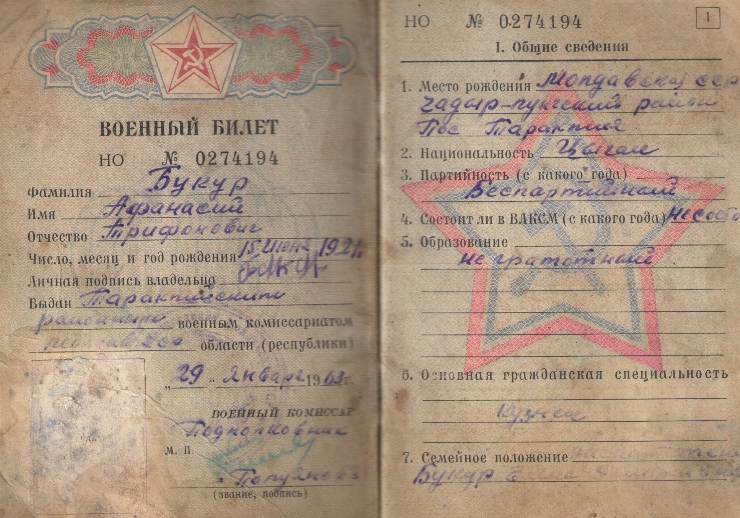 ВОЕННЫЙ БИЛЕТ
НО № 0274194
Фамилия Букур
Имя Афанасий
Отчество Трифонович
Число, месяц и год рождения 15 июня 192
Личная подпись владельца
Выдан Тараклийским
районным военным комиссариатом
области (республики)
„29" Января 1963 г.
ВОЕННЫЙ КОМИССАР
Подполковник
М. П.
(звание, подпись)
НО № 0274194
1
I. Общие сведения
1. Место рождения Молдавская сср
Чадыр-лунгский район
Пос Тараклия
2. Национальность Цыган
3. Партийность (с какого года)
Беспартийный
4. Состоит ли в ВЛКСМ (с какого года)
5. Образование
не грамотный
6. Основная гражданская специальность
Кузнец
7. Семейное положение
Букур